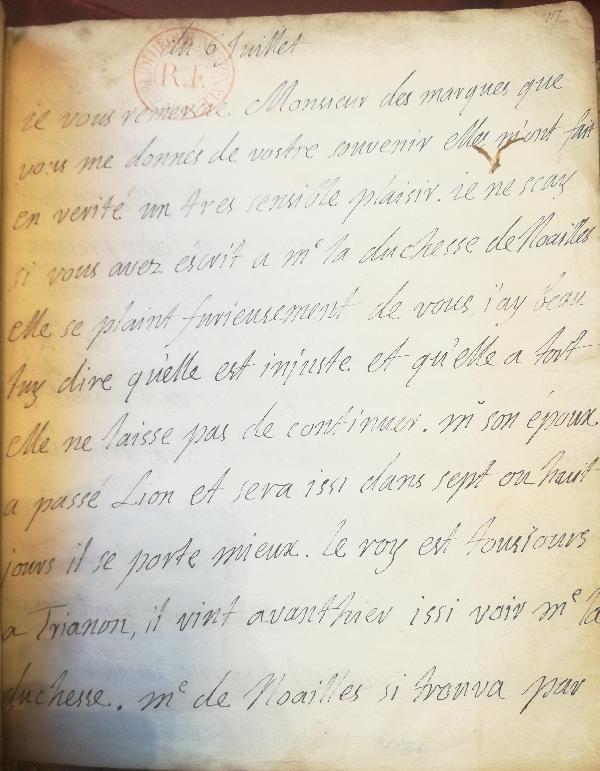 117
du 6 Juillet
R.F.
ie vous remercie Monsieur des marques que
vous me donnés de vostre souvenir elles m'ont fait
en verité un tres sensible plaisir. ie ne scay
si vous avez escrit a me la duchesse de Noailles
elle se plaint furieusement de vous, i'ay beau
luy dire qu'elle est injuste et qu'elle a tort
elle ne laisse pas de continuer. mr son époux
a passé Lion et sera issi dans sept ou huit
jours il se porte mieux. le roy est tousiours
a Trianon, il vint avanthier issi voir me la
duchesse. me de Noailles si trouva par